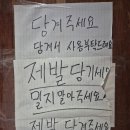 당겨주세요
당겨서 사용부탁드려요
제발 당기세요
밀지말아주세요!
제발 당겨주세요